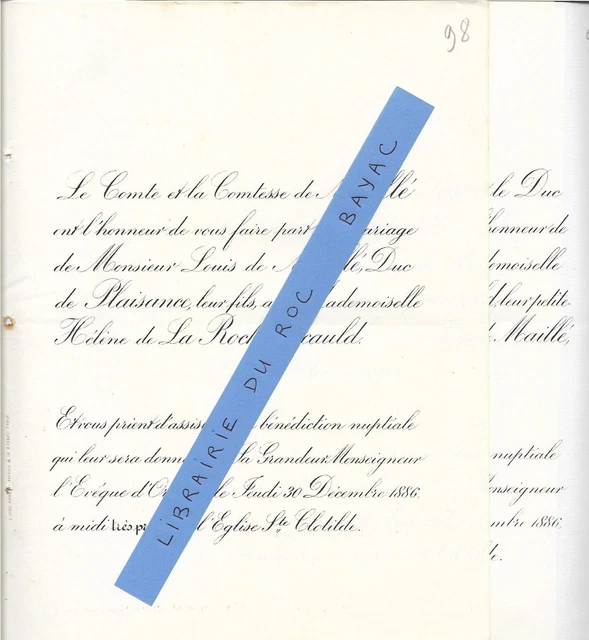 98
Le Comte et la Comtesse de M llé
ont l'honneur de vous faire part ariage
de Monsieur Louis de M llé, Duc
de Plaisance, leur fils, a ademoiselle
Hélène de La Roch cauld.
Et vous prient d'assis bénédiction nuptiale
qui leur sera donn la Grandeur Monseigneur
l'Evêque d'Or le Jeudi 30 Décembre 1886.
à midi très pr l'Eglise Ste Clotilde.
LIBRAIRIE DU ROC BAYAC
le Duc
honneur de
demoiselle
d, leur petite-
de Maillé,
nuptiale
onseigneur
mbre 1886,
de.